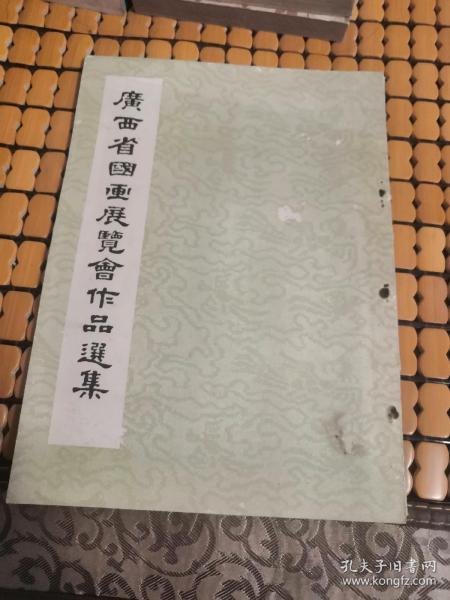 廣西省國畫展覽會作品選集
孔夫子旧书网
www.kongfz.com